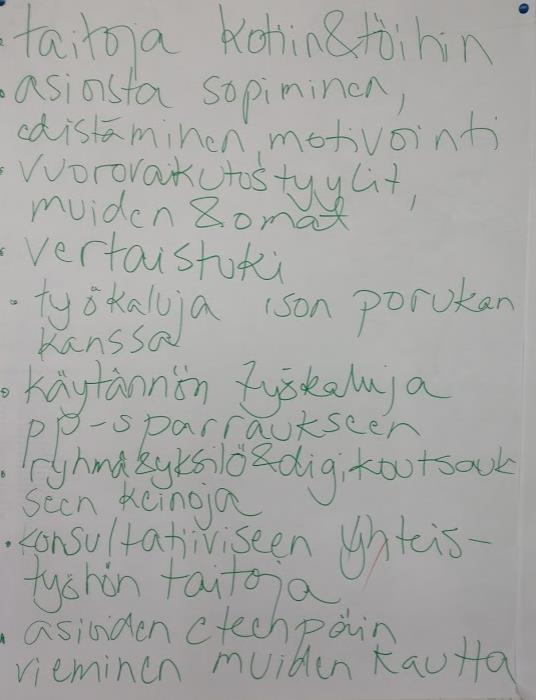 • taitoja kotiin&töihin
• asioista sopiminen,
edistäminen, motivointi
• vuorovaikutustyylit,
muiden & omat
• vertaistuki
• työkaluja ison porukan
kanssa
• käytännön työkaluja
pp-sparraukseen
• ryhmä&yksilö&digikoutsauk
seen keinoja
• konsultatiiviseen yhteis-
työhön taitoja
• asioiden eteenpäin
vieminen muiden kautta